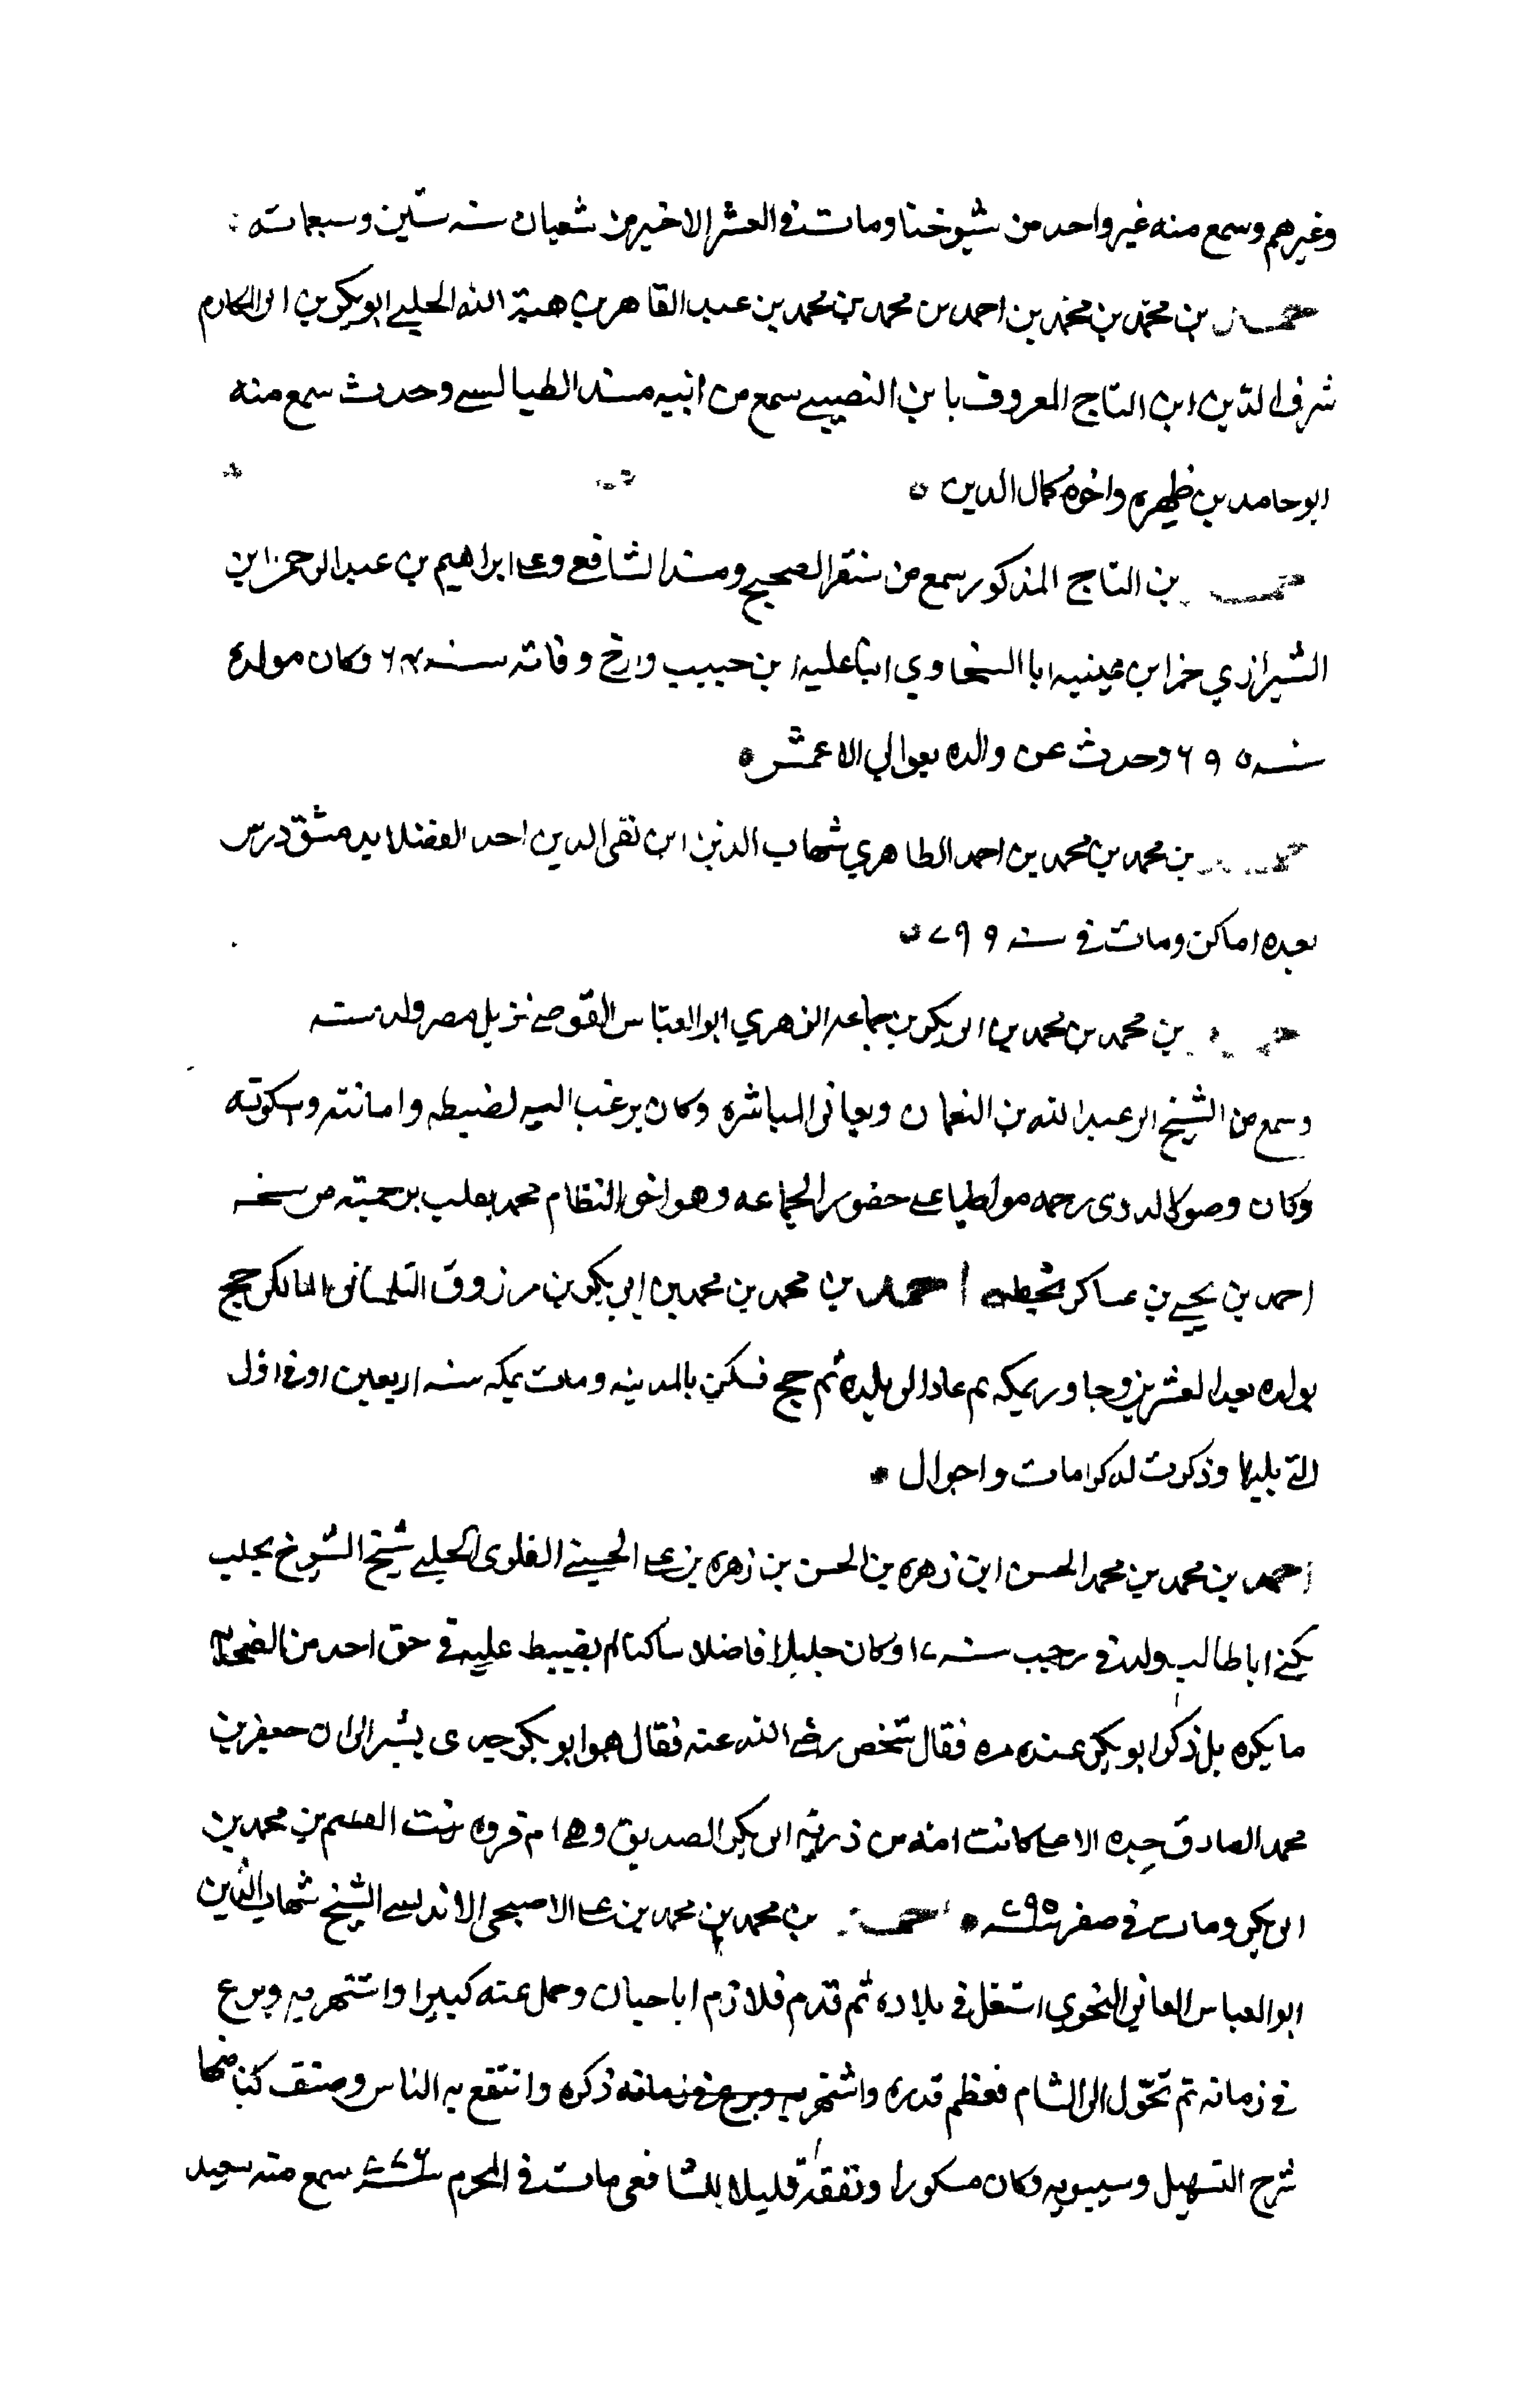 وغيرهم وسمع منه غير واحد من شيوخنا ومات في العشر الاخير من شعبان سنه ستين وسبعمائه
بن محمد بن محمد بن احمد بن محمد بن محمد بن عبد القاهر بن هبة الله الحلبي ابو بكر بن ابي المكارم
شرف الدين ابن التاج المعروف بابن النصيبي سمع من ابيه مسند الطيالسي وحدث سمع منه
ابو حامد بن ظهيره واخوه كمال الدين
بن التاج المذكور سمع من سنقر الصحيح ومسند الشافعي وعلى ابراهيم بن عبد الرحمن ابن
الشيرازي ابا السخاوي ابن حبيب وارخ وفاته سنه وكان مولده
سنه ٦٩٥ وحدث عن والده بعوالي الاعمش
بن محمد بن محمد بن احمد الطاهري شهاب الدين ابن تقي الدين احد الفضلا بدمشق درس
بعده اماكن ومات في سنه ٧٩٩
بن محمد بن محمد بن ابي بكر بن جماعه الزهري ابو العباس القوصي نزيل مصر ولد سنه
وسمع من الشيخ ابي عبد الله بن النعمان وتعانى المباشره وكان يرغب اليه لضبطه وامانته وسكوته
وكان وصولا لدوي رحمه مواظبا على حضور الجماعه وهو اخو النظام محمد
احمد بن يحيى بن عساكر بخطه احمد بن محمد بن محمد بن ابي بكر بن مرزوق التلمساني المالكي حج
بولده بعد العشرين وجاور بمكه ثم عاد الى بلده ثم حج فسكن بالمدينه ومات بمكه سنه اربعين او في اول
التي يليها وذكرت له كرامات واحوال
احمد بن محمد بن محمد الحسن ابن زهره بن الحسن بن زهره بن على الحسيني العلوي الحلبي شيخ الشيوخ بحلب
يكنى ابا طالب ولد في رجب سنه وكان جليلا فاضلا ساكنا لم يضبط عليه في حق احد من الصحابه
ما يكره بل ذكر ابو بكر عنده مره فقال شخص رضي الله عنه فقال هو ابو بكر جدي يشير الى ان جعفر بن
محمد الصادق جده الاعلى كانت امه من ذرية ابي بكر الصديق وهي ام فروه بنت القسم بن محمد بن
ابي بكر ومات في صفر سنه ٧٩٥ احمد بن محمد بن محمد بن على الاصبحي الاندلسي الشيخ شهاب الدين
ابو العباس العنابي النحوي اشتغل في بلاده ثم قدم فلازم ابا حيان وحمل عنه كثيرا واشتهر به وبرع
في زمانه ثم تحول الى الشام فعظم قدره واشتهر به وبرع في زمانه ذكره وانتفع به الناس وصنف كتبا منها
شرح التسهيل وسيبويه وكان مشكورا وتفقه قليلا للشافعي مات في المحرم سنه ٧٧٦ سمع منه سعيد